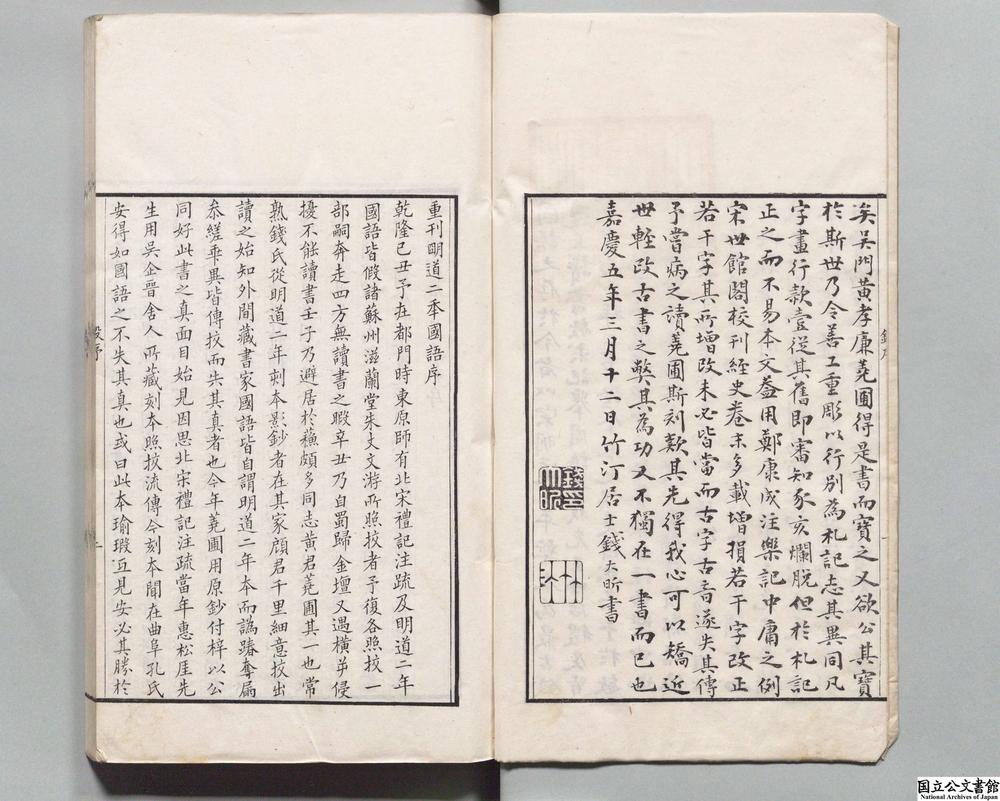 矣吴門黃孝廉蕘圃得是書而寶之又欲公其寶
於斯世乃令善工重彫以行別為札記志其異同凡
字畫行款壹從其舊即審知豕亥爛脫但於札記
正之而不易本文蓋用鄭康成注樂記中庸之例
宋世館閣校刊經史卷末多載增損若干字改正
若干字其所增改未必皆當而古字古音遂失其傳
予嘗病之讀蕘圃斯刻歎其先得我心可以矯近
世輕改古書之弊其為功又不獨在一書而已也
嘉慶五年三月十二日竹汀居士錢大昕書
錢序
重刊明道二本國語序
乾隆己丑予在都門時東原師有北宋禮記注疏及明道二年
國語皆假諸蘇州滋蘭堂朱文文游所照挍者予復各照挍一
部嗣奔走四方無讀書之暇辛丑乃自蜀歸金壇又遇橫逆侵
擾不能讀書壬子乃避居於蘇頗多同志黃君蕘圃其一也常
熟錢氏從明道二年刺本影鈔者在其家顧君千里細意挍出
讀之始知外間藏書家國語皆自謂明道二年本而譌踳奪扁
叅縒乖異皆傳挍而失其真者也今年蕘圃用原鈔付梓以公
同好此書之真面目始見因思北宋禮記注疏當年惠松厓先
生用吳企晉舍人所藏刻本照挍流傳今刻本聞在曲阜孔氏
安得如國語之不失其真也或曰此本瑜瑕互見安必其勝於
段序
一
国立公文書館
National Archives of Japan